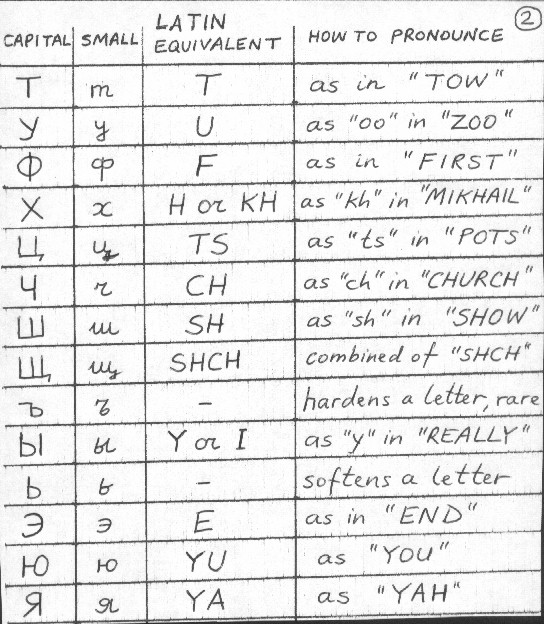 2
CAPITAL SMALL LATIN EQUIVALENT HOW TO PRONOUNCE
Т т T as in "TOW"
У у U as "oo" in "ZOO"
Ф ф F as in "FIRST"
Х х H or KH as "kh" in "MIKHAIL"
Ц ц TS as "ts" in "POTS"
Ч ч CH as "ch" in "CHURCH"
Ш ш SH as "sh" in "SHOW"
Щ щ SHCH combined of "SHCH"
Ъ ъ - hardens a letter, rare
Ы ы Y or I as "y" in "REALLY"
Ь ь - softens a letter
Э э E as in "END"
Ю ю YU as "YOU"
Я я YA as "YAH"